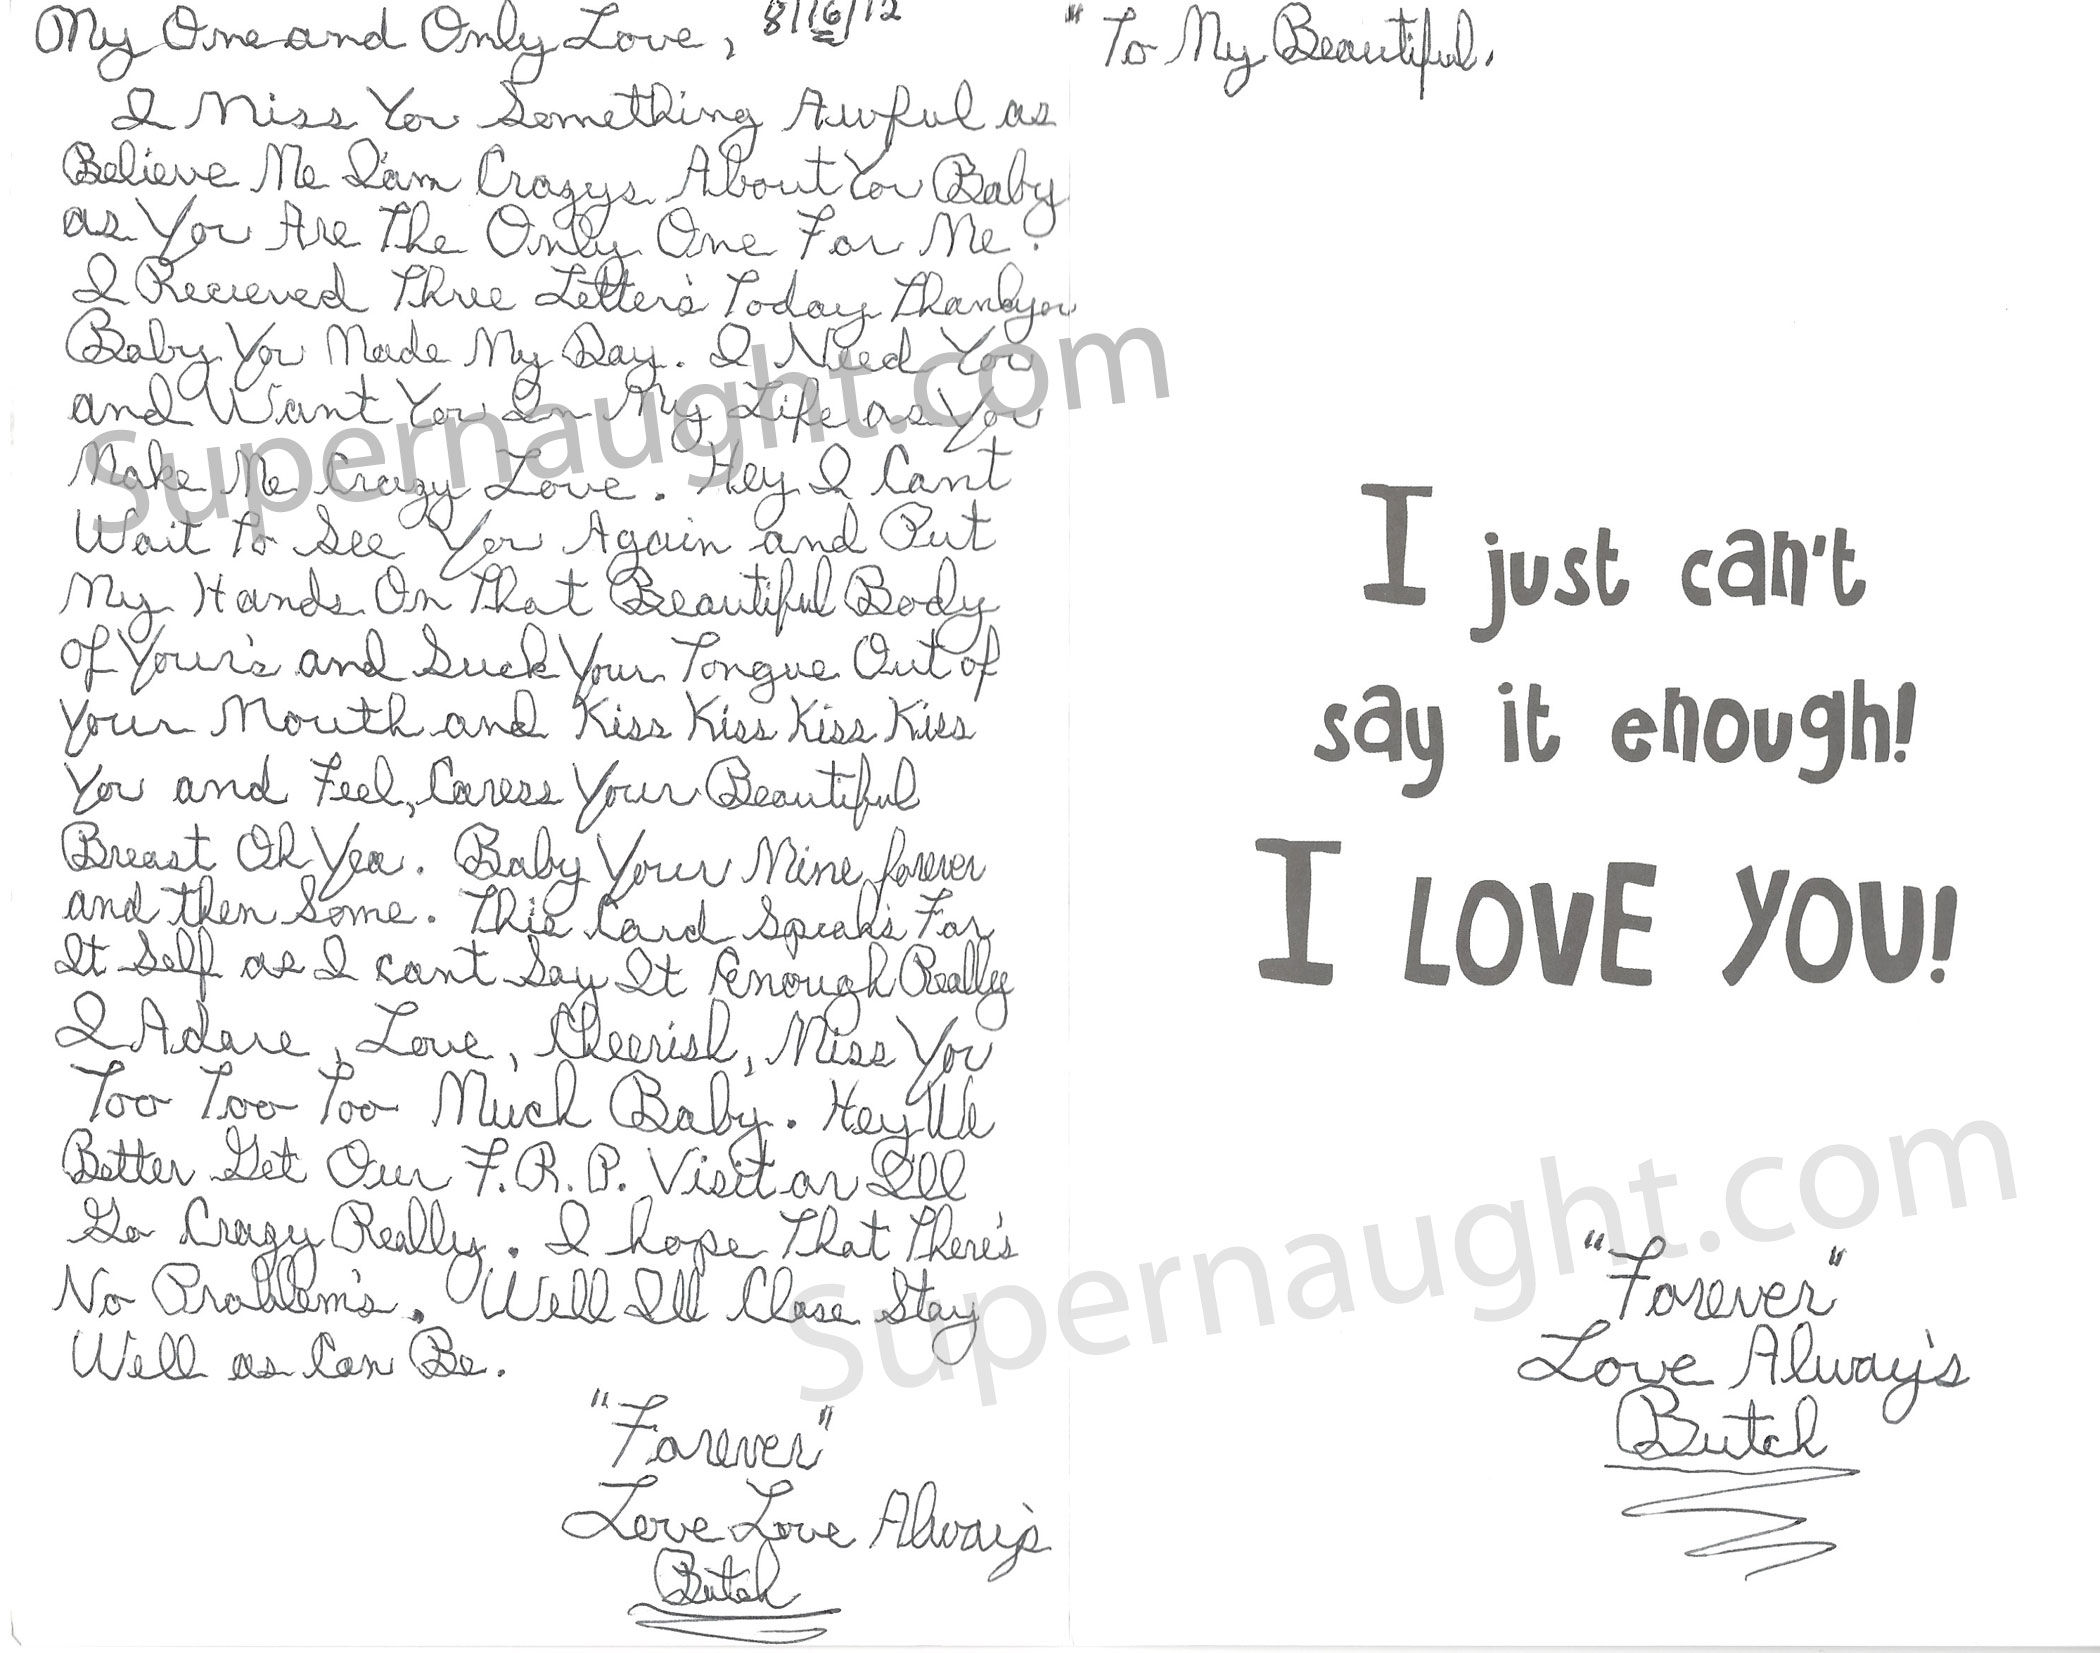 My One and Only Love, 8/16/12
I Miss You Something Awful as
Believe Me I'am Crazys About You Baby
as You Are The Only One For Me.
I Recieved Three Letter's Today Thankyou
Baby You Made My Day. I Need You
and Want You In My Life as You
Make Me Crazy Love. Hey I Cant
Wait To See You Again and Put
My Hands On That Beautiful Body
of Your's and Suck Your Tongue Out of
Your Mouth and Kiss Kiss Kiss Kiss
You and Feel, Caress Your Beautiful
Breast Oh Yea. Baby Your Mine forever
and then Some. This Card Speaks For
It Self as I cant Say It Enough Really
I Adore, Love, Cheerish, Miss You
Too Too Too Much Baby. Hey We
Better Get Our F.R.P. Visit or I'll
Go Crazy Really. I hope That There's
No Problem's. Well I'll Close Stay
Well as Can Be.
"Forever"
Love Love Always
Butch
"To My Beautiful.
I just can't
say it enough!
I LOVE YOU!
"Forever"
Love Alway's
Butch
Supernaught.com
Supernaught.com